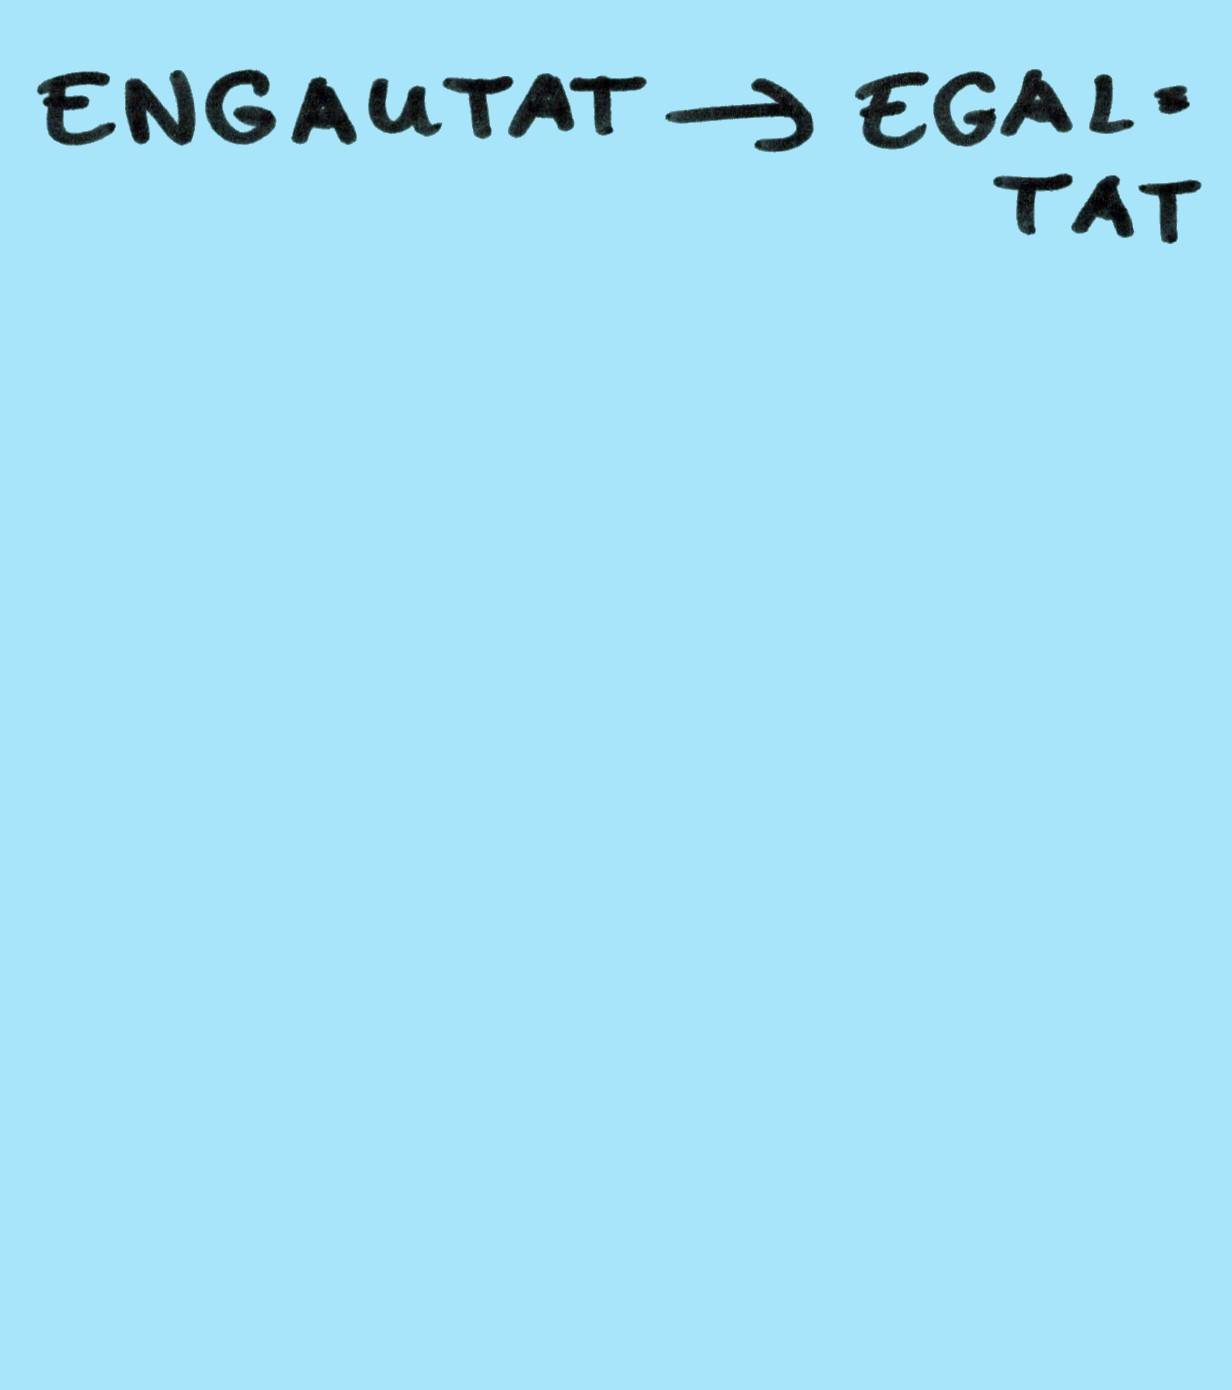 ENGAUTAT → EGAL=
TAT